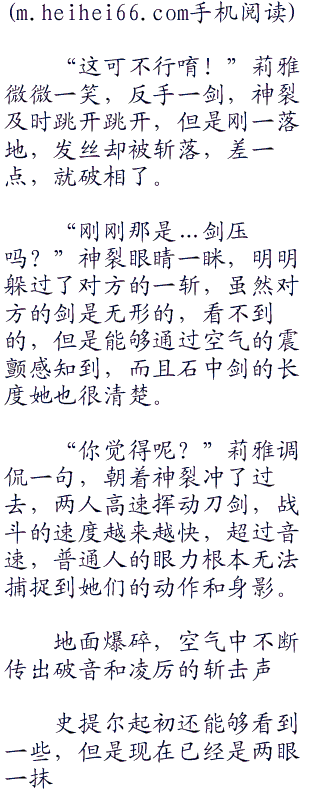 (m.heihei66.com手机阅读)
“这可不行唷！”莉雅
微微一笑，反手一剑，神裂
及时跳开跳开，但是刚一落
地，发丝却被斩落，差一
点，就破相了。
“刚刚那是…剑压
吗？”神裂眼睛一眯，明明
躲过了对方的一斩，虽然对
方的剑是无形的，看不到
的，但是能够通过空气的震
颤感知到，而且石中剑的长
度她也很清楚。
“你觉得呢？”莉雅调
侃一句，朝着神裂冲了过
去，两人高速挥动刀剑，战
斗的速度越来越快，超过音
速，普通人的眼力根本无法
捕捉到她们的动作和身影。
地面爆碎，空气中不断
传出破音和凌厉的斩击声
史提尔起初还能够看到
一些，但是现在已经是两眼
一抹